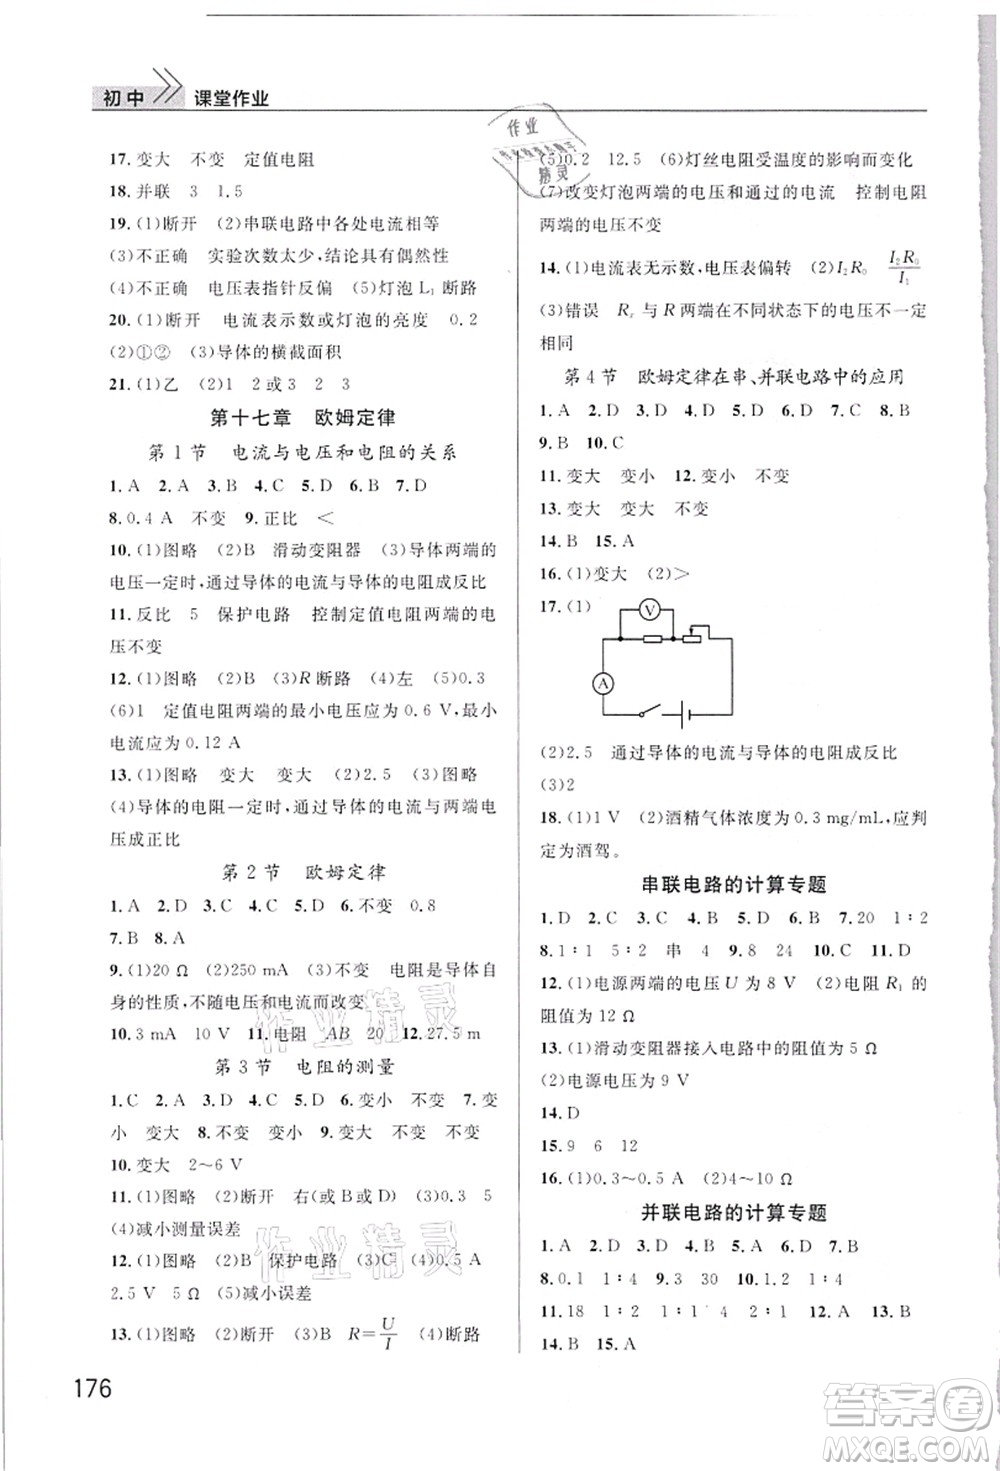 初中 课堂作业
17.变大 不变 定值电阻
18.并联 3 1.5
19.(1)断开 (2)串联电路中各处电流相等
(3)不正确 实验次数太少,结论具有偶然性
(4)不正确 电压表指针反偏 (5)灯泡 L₁ 断路
20.(1)断开 电流表示数或灯泡的亮度 0.2
(2)①② (3)导体的横截面积
21.(1)乙 (2)1 2或3 2
第十七章 欧姆定律
第1节 电流与电压和电阻的关系
1.A 2.A 3.B 4.C 5.D 6.B 7.D
8.0.4 A 不变 9.正比 <
10.(1)图略 (2)B 滑动变阻器 (3)导体两端的
电压一定时,通过导体的电流与导体的电阻成反比
11.反比 5 保护电路 控制定值电阻两端的电
压不变
12.(1)图略 (2)B (3)R断路 (4)左 (5)0.3
(6)1 定值电阻两端的最小电压应为 0.6 V,最小
电流应为 0.12 A
13.(1)图略 变大 变大 (2)2.5 (3)图略
(4)导体的电阻一定时,通过导体的电流与两端电
压成正比
第2节 欧姆定律
1.A 2.D 3.C 4.B 5.C 6.不变 0.8
7.B 8.A
9.(1)20 Ω (2)250 mA (3)不变 电阻是导体自
身的性质,不随电压和电流而改变
10.3 mA 10V 11.电阻 AB 20 12.27.5 m
第3节 电阻的测量
1.C 2.A 3.B 4.B 5.C 6.变小 不变 7.变
小 变大 8.不变 变小 9.变大 不变 不变
10.变大 2~6 V
11.(1)图略 (2)断开 右(或B或D) (3)0.3 5
(4)减小测量误差
12.(1)图略 (2)B 保护电路 (3)C (4)0.5 A
2.5 V 5 Ω (5)减小误差
13.(1)图略 (2)断开 (3)B R=U/I (4)断路
176
(5)0.2 12.5 (6)灯丝电阻受温度的影响而变化
(7)改变灯泡两端的电压和通过的电流 控制电阻
两端的电压不变
14.(1)电流表无示数,电压表偏转 (2)I₂R₀ I₂R₀/I₁
(3)错误 Rₓ与R两端在不同状态下的电压不一定
相同
第4节 欧姆定律在串、并联电路中的应用
1.A 2.D 3.C 4.D 5.D 6.D 7.C 8.B
9.B 10.C
11.变大 变小 12.变小 不变
13.变大 变大 不变
14.B 15.A
16.(1)变大 (2)>
17.(1)
V
A
(2)2.5 通过导体的电流与导体的电阻成反比
(3)2
18.(1)1 V (2)酒精气体浓度为 0.3 mg/mL,应判
定为酒驾。
串联电路的计算专题
1.D 2.C 3.C 4.B 5.D 6.B 7.20 1∶2
8.1∶1 5∶2 串 4 9.8 24 10.C 11.D
12.(1)电源两端的电压 U 为 8 V (2)电阻 R₁ 的
阻值为 12 Ω
13.(1)滑动变阻器接入电路中的阻值为 5 Ω
(2)电源电压为 9 V
14.D
15.9 6 12
16.(1)0.3~0.5 A (2)4~10 Ω
并联电路的计算专题
1.A 2.D 3.D 4.C 5.A 6.D 7.B
8.0.1 1∶4 9.3 30 10.1.2 1∶3
11.18 1∶2 1∶4 2∶1 12.A 13.B
14.B 15.A
作业
精灵
作业精灵
作业精灵
答案圈
MXQE.COM